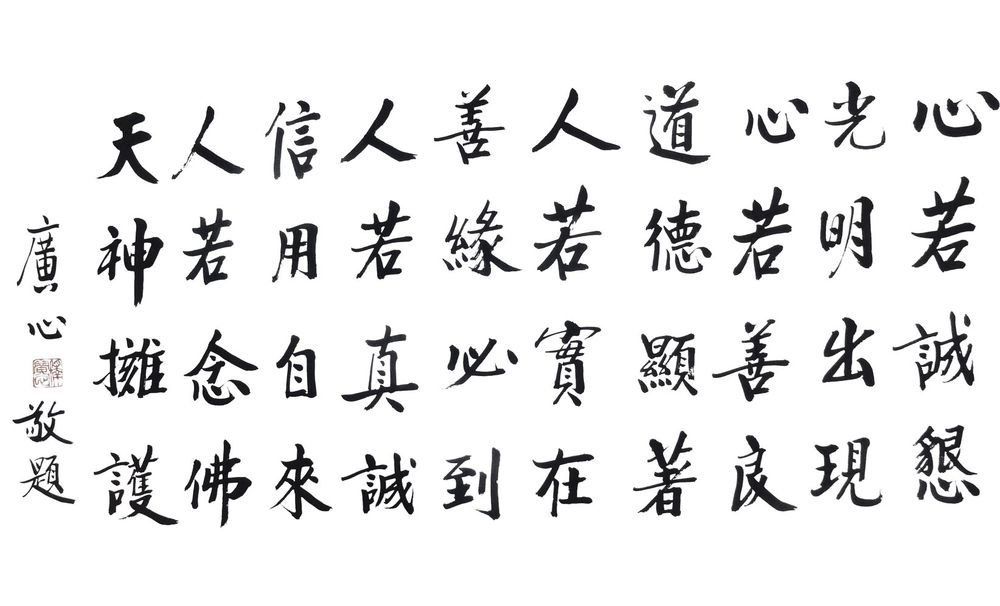 心若誠懇
光明出現
心若善良
道德顯著
人若實在
善緣必到
人若真誠
信用自來
人若念佛
天神擁護
廣心敬題